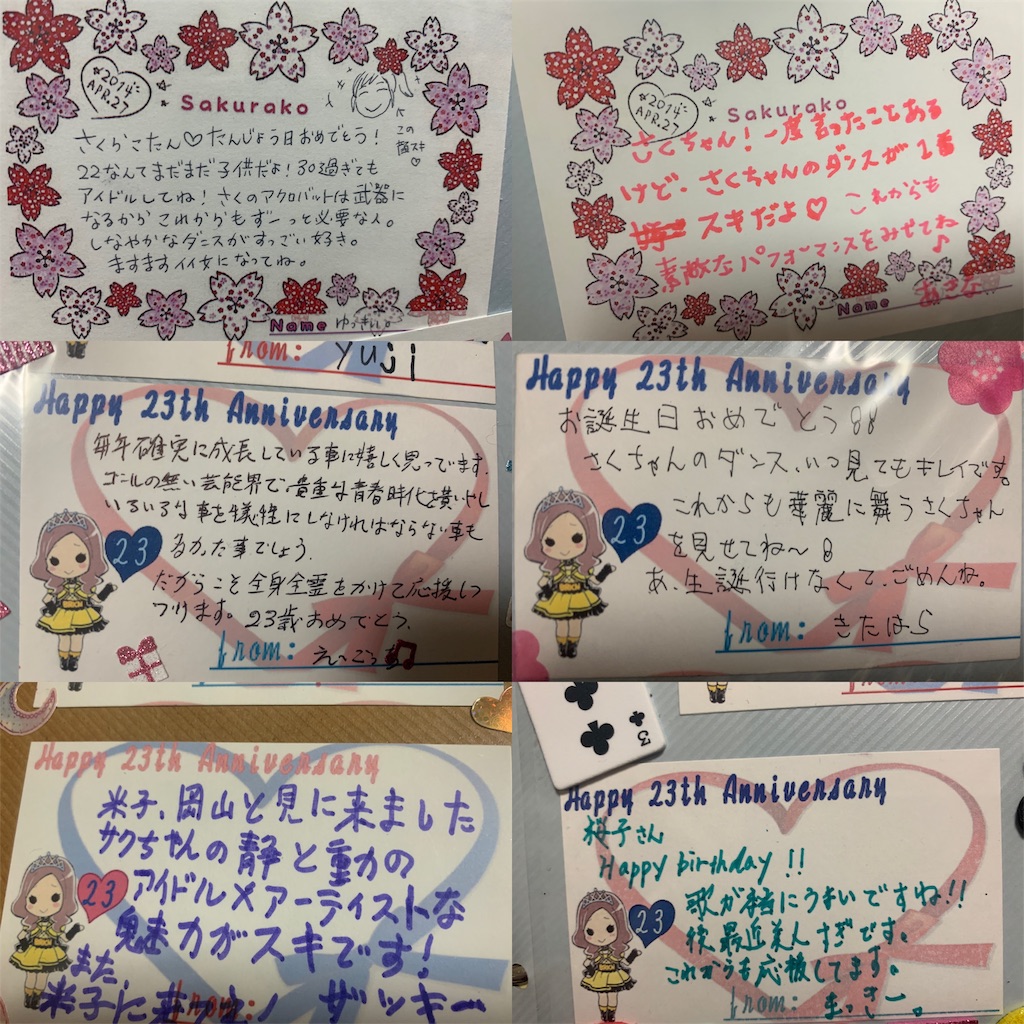 2014
APR.27
Sakurako
この
顔スキ
さくらこたん♡たんじょう日おめでとう!
22なんてまだまだ子供だよ!30過ぎても
アイドルしてね!さくのアクロバットは武器に
なるから これからもずーっと必要な人。
しなやかなダンスがすっごい好き。
ますますイイ女になってね。
Name ゆっきぃ。
2014
APR.27
Sakurako
さくちゃん!一度言ったことある
けど、さくちゃんのダンスが1番
スキだよ♡ これからも
素敵なパフォーマンスをみせてね♪
Name あきな
from: yuji
Happy 23th Anniversary
毎年確実に成長している事に嬉しく見っています。
ゴールの無い芸能界で、貴重な青春時代を費やし
いろいろな事を犠牲にしなければならない事も
多かった事でしょう。
だからこそ全身全霊をかけて応援し
つづけます。23歳おめでとう。
23
from:
Happy 23th Anniversary
お誕生日おめでとう!!
さくちゃんのダンス、いつ見てもキレイです。
これからも華麗に舞うさくちゃん
を見せてね〜!
あ、生誕行けなくて、ごめんね。
23
from: きたはら
Happy 23th Anniversary
米子、岡山と見に来ました
サクちゃんの静と動の
アイドル×アーティストな
魅力がスキです!
また
米子に来てね! ザッキー
23
from:
3
Happy 23th Anniversary
桜子さん
Happy birthday !!
歌が本当にうまいですね!!
最近美人すぎです。
これからも応援してます。
23
from: まっきー。